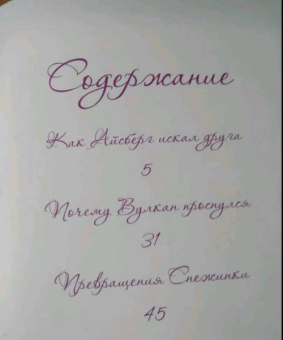 Содержание
Как Айсберг искал друга
5
Почему Вулкан проснулся
31
Превращения Снежинки
45